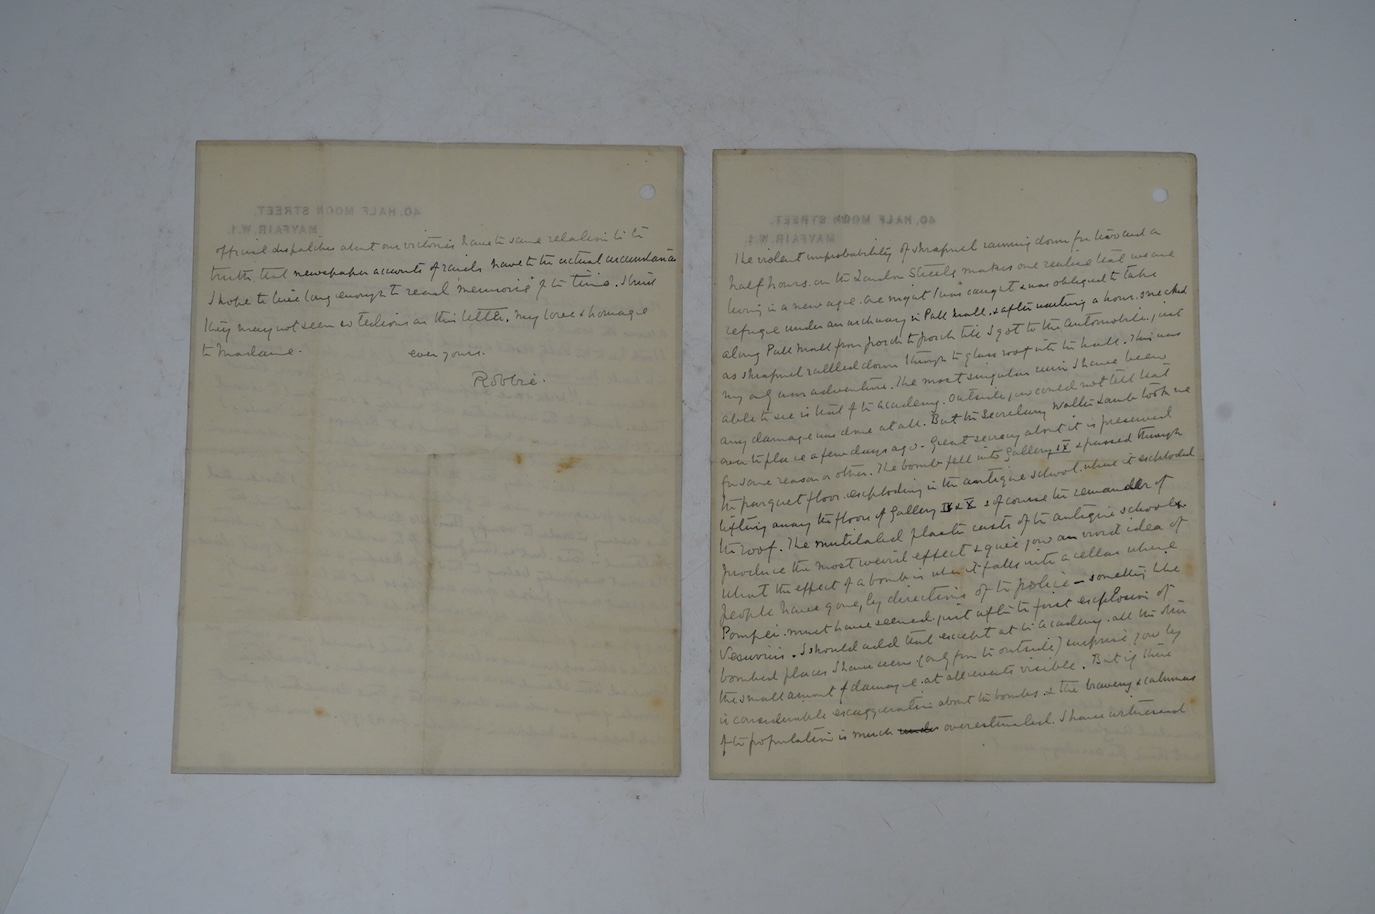 40, HALF MOON STREET,
MAYFAIR. W.1.
official despatches about our victories have the same relation to the
truth that newspaper accounts of raids have to the actual circumstances
I hope to live long enough to read memoirs of the time. I trust
they may not seem so tedious as this letter. My love & homage
to Madame.
ever yours.
Robbie.
40, HALF MOON STREET,
MAYFAIR. W.1.
The violent improbability of shrapnel raining down for two and a
half hours in the London Streets makes one realise that we are
living in a new age. One night I was caught & was obliged to take
refuge under an archway in Pall Mall & after waiting a hour sneaked
along Pall Mall from porch to porch till I got to the Automobile, just
as shrapnel rattled down through the glass roof into the hall. This was
my only adventure. The most singular ruin I have been
able to see is that of the Academy. Outside, you could not tell that
any damage was done at all. But the Secretary Walter Lamb took me
over the place a few days ago. Great secrecy about it is preserved
for some reason or other. The bomb fell into Gallery IX & passed through
the parquet floor exploding in the antique school where it exploded
lifting away the floors of Gallery IX & X & of course the remainder of
the roof. The mutilated plaster casts of the antique schools
produce the most weird effect & give you an vivid idea of
what the effect of a bomb is when it falls into a cellar where
people have gone, by directions of the police — something like
Pompei must have seemed just after the first explosion of
Vesuvius. I should add that except at the Academy all the other
bombed places I have seen (only from the outside) surprise you by
the small amount of damage at all events visible. But if there
is considerable exaggeration about the bombs & the bravery & calmness
of the population is much under overestimated. I have witnessed